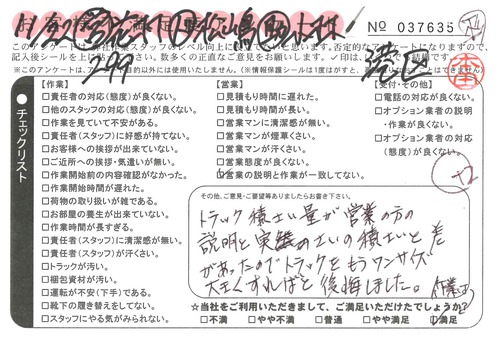 No 037635
このアンケートは、弊社作業スタッフのレベル向上に
記入後シールを上に貼っ
さい。数多くの正直なご意見をお願いします。
チェックリスト
【作業】
□責任者の対応(態度)が良くない。
□他のスタッフの対応(態度)が良くない。
□作業を見ていて不安がある。
□責任者(スタッフ)に好感が持てない。
□お客様への挨拶が出来ていない。
□ご近所への挨拶・気遣いが無い。
□作業開始前の内容確認がなかった。
□作業開始時間が遅れた。
□荷物の取り扱いが雑である。
□お部屋の養生が出来ていない。
□作業時間が長すぎる。
□責任者(スタッフ)に清潔感が無い。
□責任者(スタッフ)が汗くさい。
□トラックが汚い。
□梱包資材が汚い。
□運転が不安(下手)である。
□靴下の履き替えをしてない。
□スタッフにやる気がみられない。
【営業】
□見積もり時間に遅れた。
□見積もり時間が長い。
□営業マンに清潔感が無い。
□営業マンが煙草くさい。
□営業マンが汗くさい。
□営業態度が良くない。
□営業の説明不足
【受付・その他】
□電話の対応が良くない。
□オプション業者の説明
・作業が良くない。
□オプション業者の対応
(態度)が良くない。
港区
+2
その他、ご意見・ご要望等ありましたらお書き下さい。
トラック積さい量が営業の方の
説明と実際のさいの積さいと差
があったのでトラックをもうワンサイズ
大きくすればと後悔しました。
☆当社をご利用いただきまして、ご満足いただけたでしょうか?
□不満 □やや不満 □普通 □やや満足 □満足